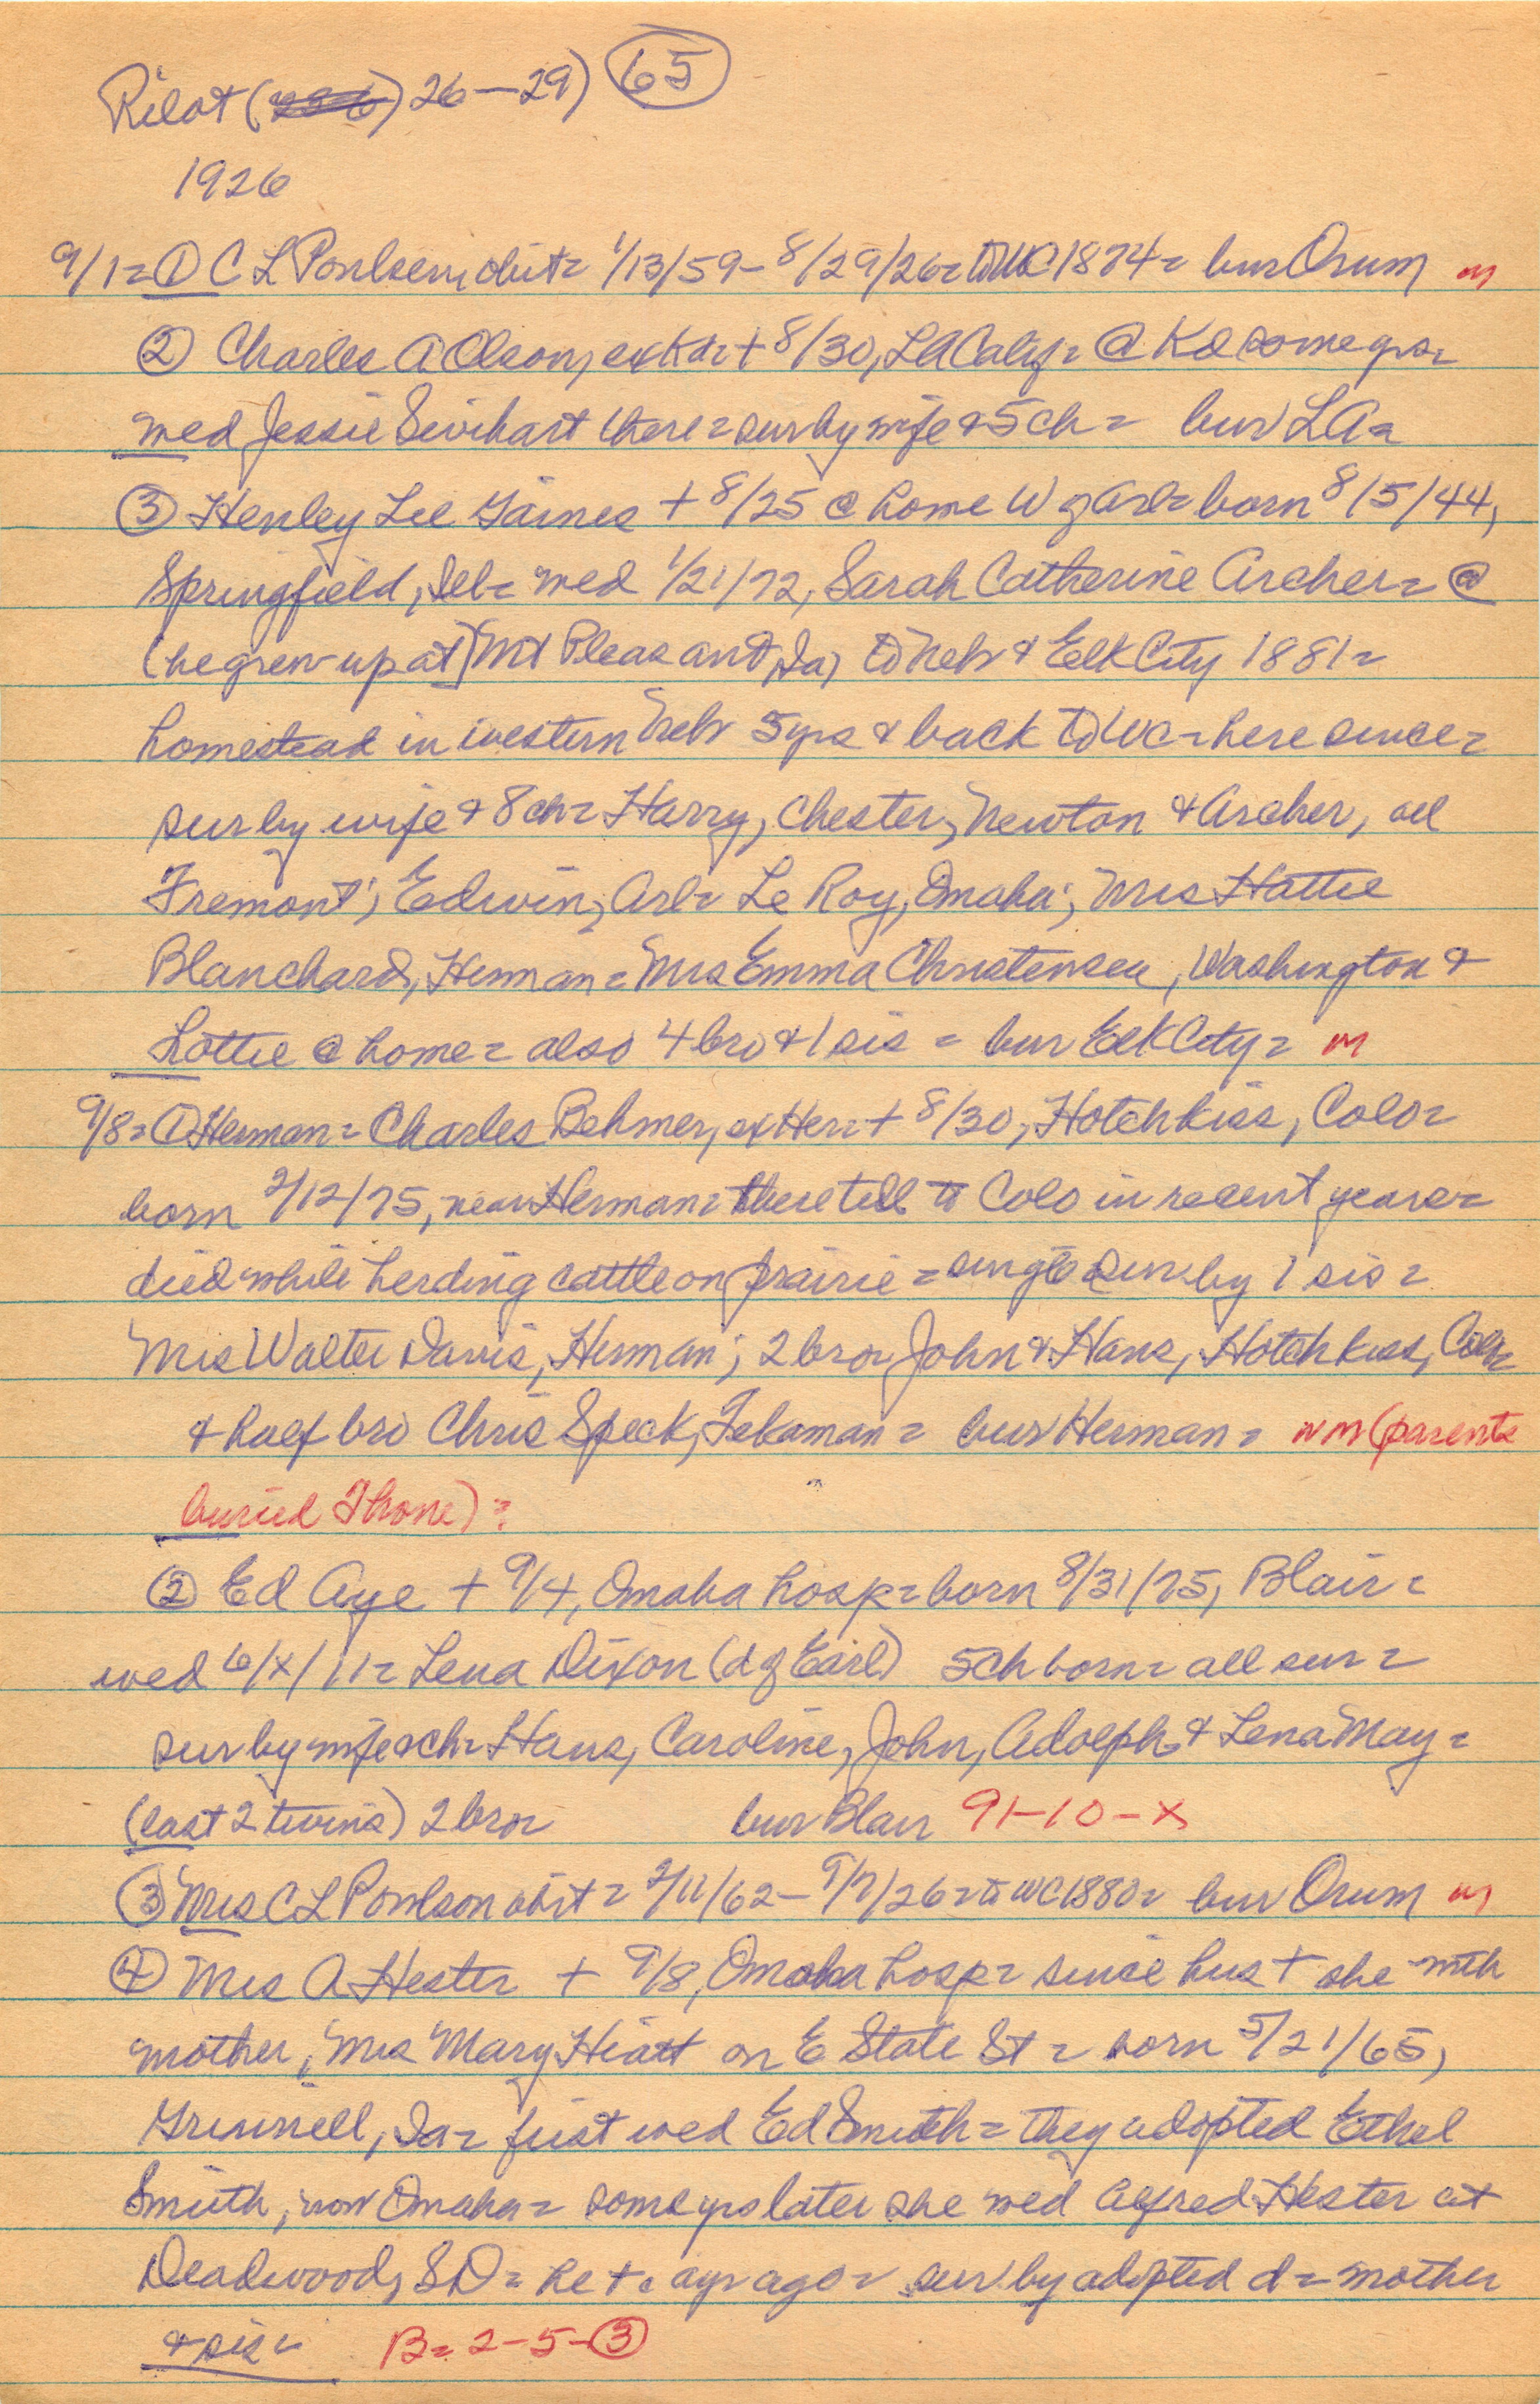 Pilot ( ) 26-29) 65
1926
9/1= ① C L Poulsen, obit= 1/13/59- 8/29/26= to WC 1874= bur Orum m
② Charles A Olson, ex Kd= + 8/30, LA Calif= @ Kd some yrs=
wed Jessie Swihart there= sur by wife & 5 ch= bur LA=
③ Henley Lee Gaines + 8/25 @ home W of Arl= born 8/5/44,
Springfield, Ill= wed 1/21/72, Sarah Catherine Archer= @
(he grew up at) Mt Pleasant, Ia, to Nebr & Elk City 1881=
homestead in western Nebr 5 yrs & back to WC= here since=
sur by wife & 8 ch= Harry, Chester, Newton & Archer, all
Fremont; Edwin, Arl= Le Roy, Omaha; Mrs Hattie
Blanchard, Herman= Mrs Emma Christensen, Washington &
Lottie @ home= also 4 bro & 1 sis= bur Elk City= m
9/8= ① Herman= Charles Behmer, ex Her= + 8/30, Hotchkiss, Colo=
born 2/12/75, near Herman= there till to Colo in recent years=
died while herding cattle on prairie= single sur by 1 sis=
Mrs Walter Davis, Herman; 2 bro= John & Hans, Hotchkiss, Colo=
& half bro Chris Speck, Tekamah= bur Herman= nm (parents
buried Thone)=
② Ed Aye + 9/4, Omaha hosp= born 8/31/75, Blair=
wed 6/x/11= Lena Dixon (d of Earl) 5 ch born= all sur=
sur by wife & ch= Hans, Caroline, John, Adolph & Lena May=
(last 2 twins) 2 bro= bur Blair 91-10-x
③ Mrs C L Poulson obit= 2/11/62- 9/7/26= to WC 1880= bur Orum m
④ Mrs A Hester + 9/8, Omaha hosp= since hus + she with
mother, Mrs Mary Hiatt on E State St= born 5/21/65,
Grinnell, Ia= first wed Ed Smith= they adopted Ethel
Smith, now Omaha= some yrs later she wed Alfred Hester at
Deadwood, SD= he + a yr ago= sur by adopted d= mother
& sis= B= 2-5-③